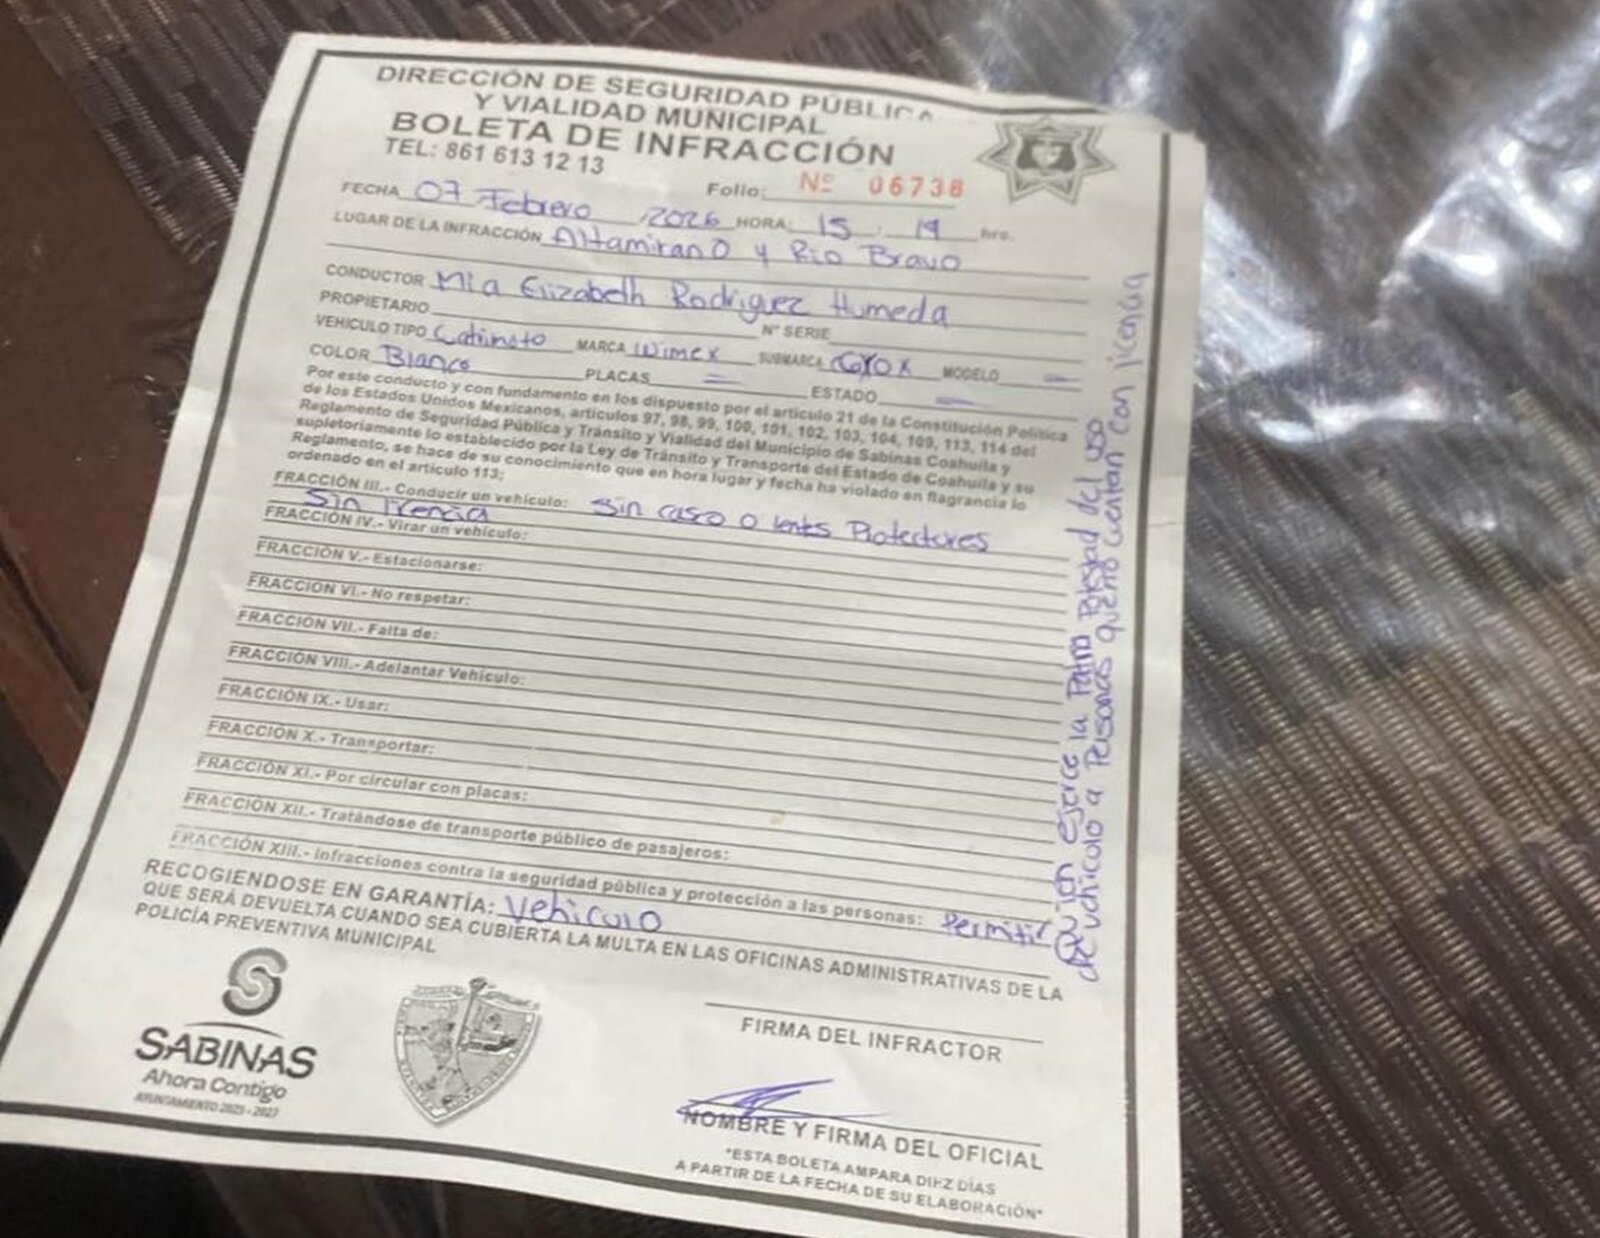 DIRECCIÓN DE SEGURIDAD PÚBLICA
Y VIALIDAD MUNICIPAL
BOLETA DE INFRACCIÓN
TEL: 861 613 12 13
Folio: Nº 06738
FECHA 07 Febrero /2026 HORA: 15 : 19 hrs.
LUGAR DE LA INFRACCIÓN Altamirano y Rio Bravo
CONDUCTOR Mia Elizabeth Rodriguez Humeda
PROPIETARIO Nº SERIE
VEHICULO TIPO MARCA Wimex SUBMARCA MODELO —
COLOR Blanco PLACAS = ESTADO =
Por este conducto y con fundamento en los dispuesto por el artículo 21 de la Constitución Política
de los Estados Unidos Mexicanos, artículos 97, 98, 99, 100, 101, 102, 103, 104, 109, 113, 114 del
Reglamento de Seguridad Pública y Tránsito y Vialidad del Municipio de Sabinas Coahuila y
supletoriamente lo establecido por la Ley de Tránsito y Transporte del Estado de Coahuila y su
Reglamento, se hace de su conocimiento que en hora lugar y fecha ha violado en flagrancia lo
ordenado en el artículo 113;
FRACCIÓN III.- Conducir un vehículo: Sin casco o lentes Protectores
Sin
FRACCIÓN IV.- Virar un vehículo:
FRACCIÓN V.- Estacionarse:
FRACCIÓN VI.- No respetar:
FRACCIÓN VII.- Falta de:
FRACCIÓN VIII.- Adelantar Vehículo:
FRACCIÓN IX.- Usar:
FRACCIÓN X.- Transportar:
FRACCIÓN XI.- Por circular con placas:
FRACCIÓN XII.- Tratándose de transporte público de pasajeros:
FRACCIÓN XIII.- Infracciones contra la seguridad pública y protección a las personas: Permitir
Quien ejerce la Patria Potestad del uso
de vehiculo a Personas que no cuentan con licencia
RECOGIENDOSE EN GARANTÍA: Vehiculo
QUE SERÁ DEVUELTA CUANDO SEA CUBIERTA LA MULTA EN LAS OFICINAS ADMINISTRATIVAS DE LA
POLICÍA PREVENTIVA MUNICIPAL
FIRMA DEL INFRACTOR
SABINAS
Ahora Contigo
AYUNTAMIENTO 2025 - 2027
NOMBRE Y FIRMA DEL OFICIAL
*ESTA BOLETA AMPARA DIEZ DÍAS
A PARTIR DE LA FECHA DE SU ELABORACIÓN*